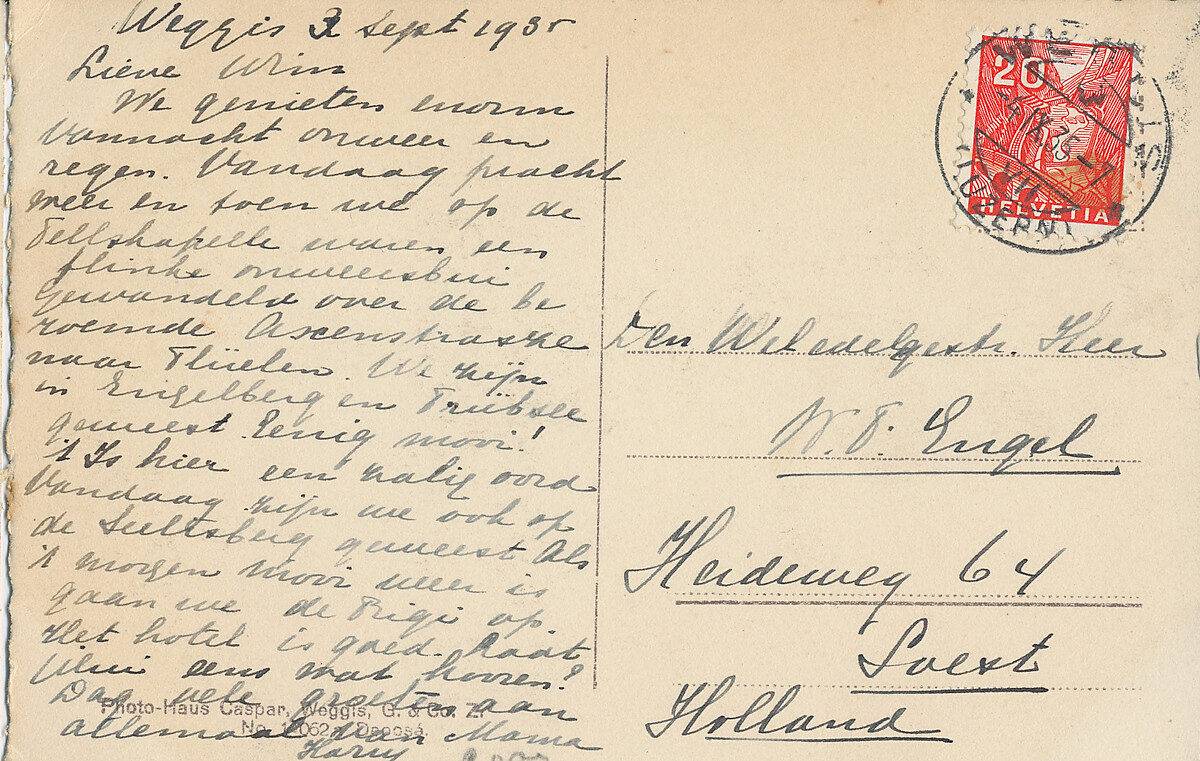 Weggis 3 Sept 1935
Lieve Wim
We genieten enorm
Vannacht onweer en
regen. Vandaag pracht
weer en toen we op de
Tellskapelle waren een
flinke onweersbui
Gewandeld over de be
roemde Axenstrasze
naar Flüelen. We zijn
in Engelberg en Trübsee
geweest. Eenig mooi!
't Is hier een zalig oord
Vandaag zijn we ook op
de Seelisberg geweest Als
't morgen mooi weer is
gaan we de Rigi op
Het hotel is goed. Laat
eens wat hooren?
Dag vele groeten aan
allemaal van Mama
Photo-Haus Caspar, Weggis, G. & Co. Z.
No. Deposé
20
HELVETIA
WEGGIS
IX.35-7
(LUZERN)
Den Weledelgestr. Heer
W.F. Engel
Heideweg 64
Soest
Holland